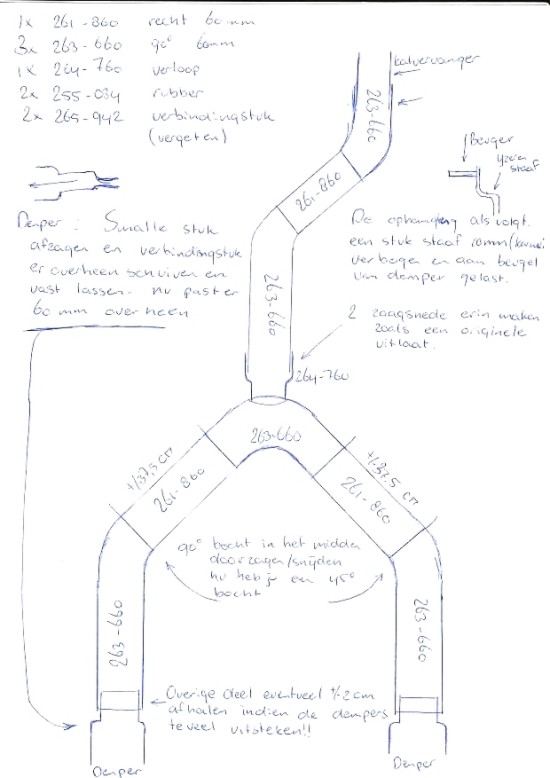 1x 261-860 recht 60mm
3x 263-660 90° 60mm
1x 264-760 verloop
2x 255-034 rubber
2x 265-942 verbindingstuk
(vergeten)
katvervanger
263-660
261-860
Beugel
yzeren
staaf
Demper : Smalle stuk
afzagen en verbindingstuk
er overheen schuiven en
vast lassen. nu past er
60 mm overheen
De ophanging als volgt.
een stuk staaf 10mm
verbogen en aan beugel
van demper gelast.
263-660
2 zaagsnede erin maken
zoals een originele
uitlaat.
264-760
263-660
+/-37,5 cm
261-860
+/-37,5 cm
261-860
90° bocht in het midden
doorzagen/snijden
nu heb je en 45°
bocht
263-660
263-660
Overige deel eventueel +/-2cm
afhalen indien de dempers
teveel uitsteken!!
Demper
Demper